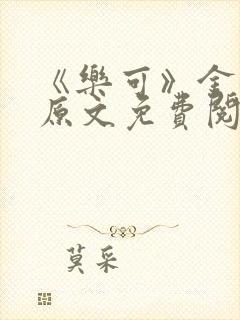 《樂可》全
原文免費閱
莫采